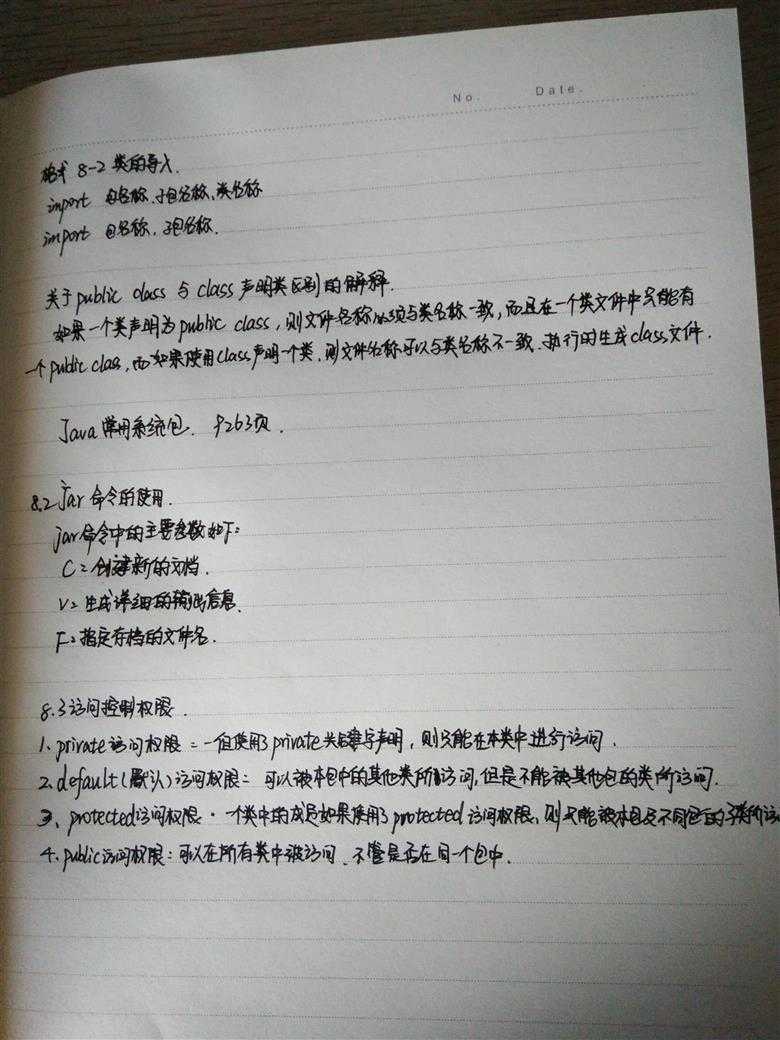 No. Date.
格式 8-2 类的导入.
import 包名称.子包名称.类名称
import 包名称.子包名称.
关于public class 与 class 声明类区别的解释.
如果一个类声明为public class, 则文件名称必须与类名称一致, 而且在一个类文件中只能有
一个public class, 而如果使用class声明一个类, 则文件名称可以与类名称不一致. 执行时生成class文件.
Java 常用系统包. P263页.
8.2 jar 命令的使用.
jar命令中的主要参数如下:
C: 创建新的文档.
V: 生成详细的输出信息.
F: 指定存档的文件名.
8.3 访问控制权限.
1. private访问权限: 一但使用了private关键字声明, 则只能在本类中进行访问.
2. default(默认)访问权限: 可以被本包中的其他类所访问, 但是不能被其他包的类所访问.
3. protected访问权限. 一个类中的成员如果使用了protected访问权限, 则只能被本包及不同包的子类所访
4. public访问权限: 可以在所有类中被访问. 不管是否在同一个包中.